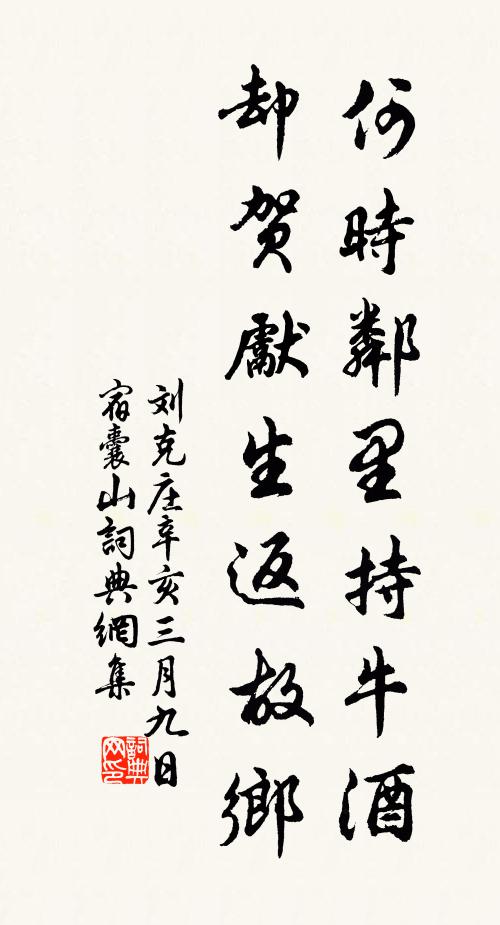 何時鄰里持牛酒
却賀獻生返故鄉
刘克庄辛亥三月九日
宿囊山詞典網集
詞典網印